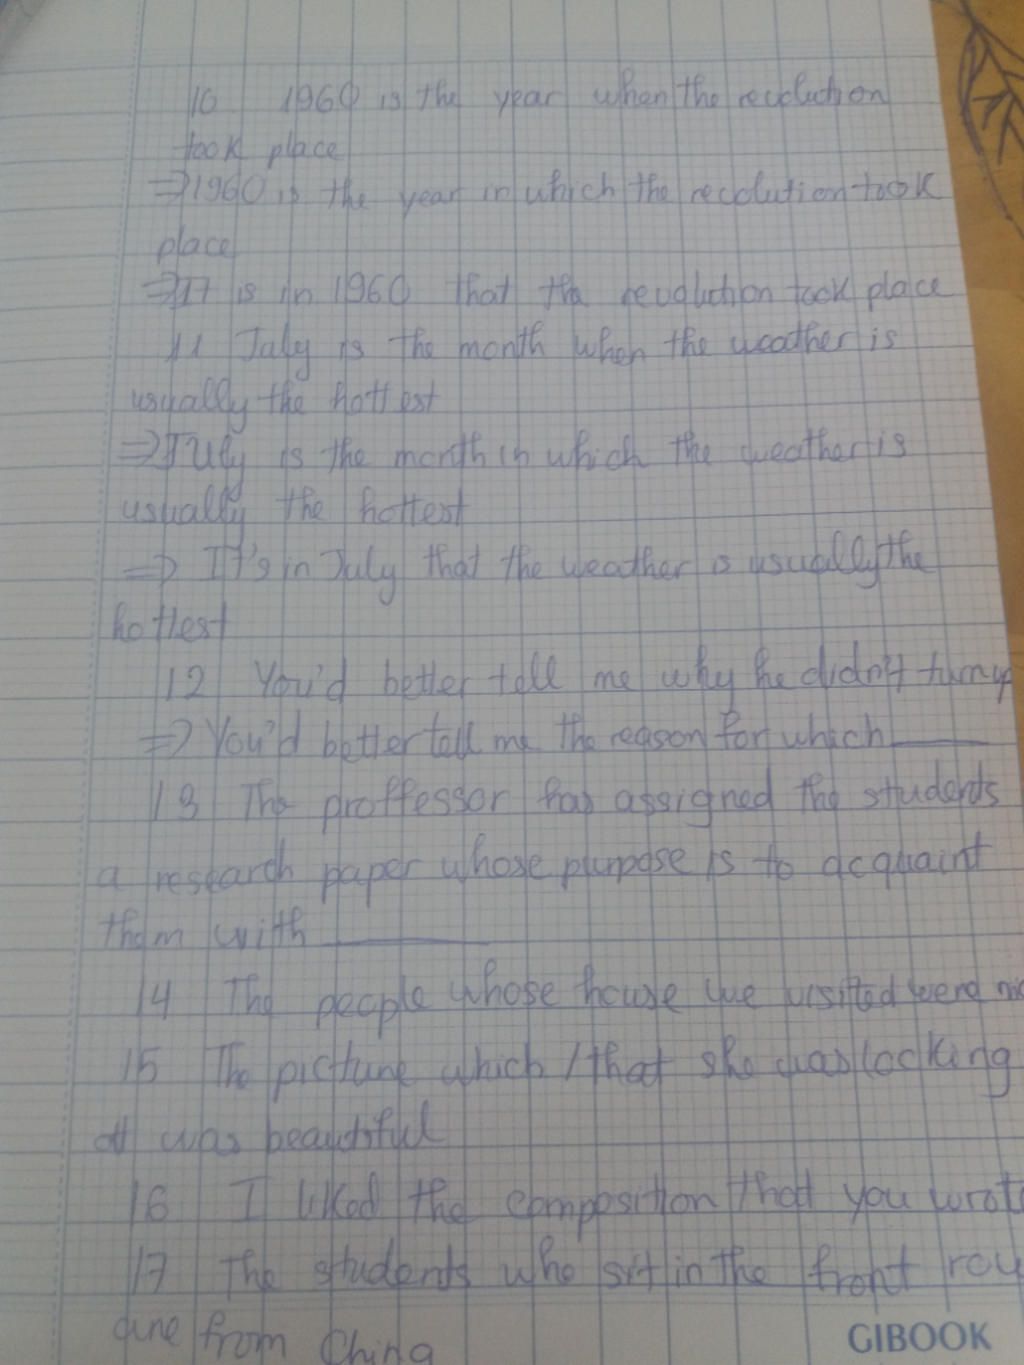 10 1960 is the year when the revolution
took place
=> 1960 is the year in which the revolution took
place
=> It is in 1960 that the revolution took place
11 July is the month when the weather is
usually the hottest
=> July is the month in which the weather is
usually the hottest
=> It's in July that the weather is usually the
hottest
12 You'd better tell me why he didn't turn up
=> You'd better tell me the reason for which ____
13 The proffessor has assigned the students
a research paper whose purpose is to acquaint
them with ____
14 The people whose house we visited were
15 The picture which / that she was looking
at was beautiful
16 I liked the composition that you wrote
17 The students who sit in the front row
are from China
GIBOOK